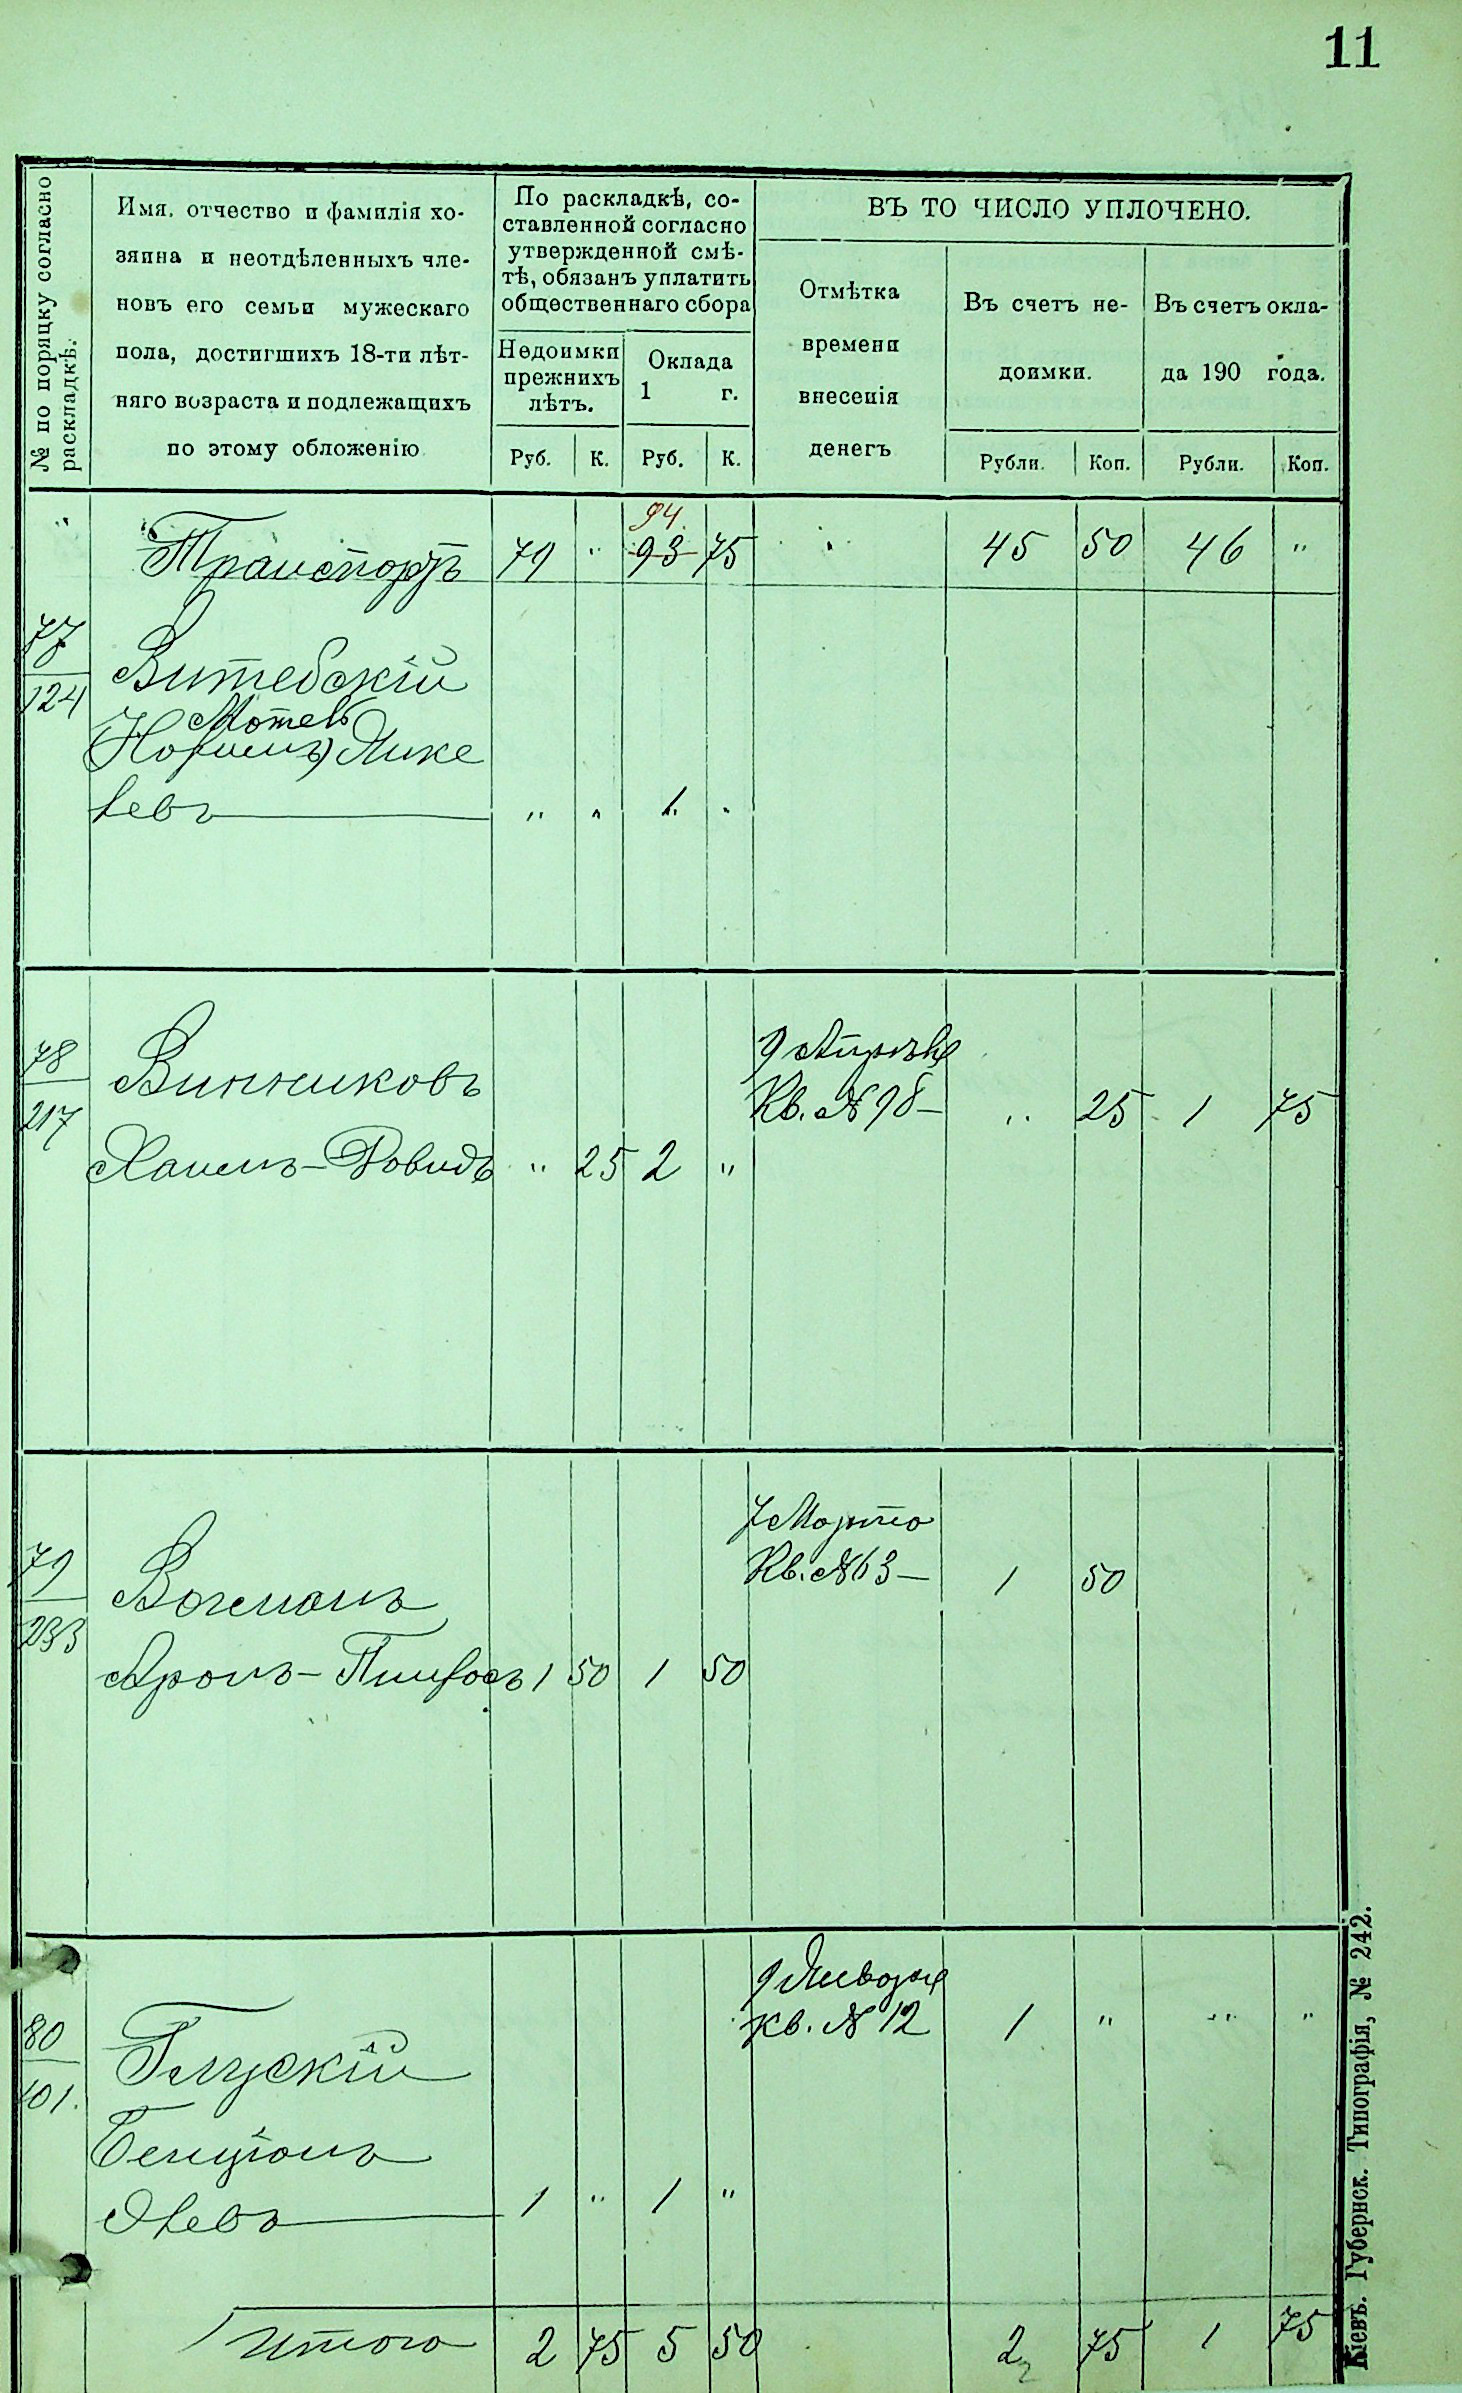 11
№ по порядку согласно
раскладкѣ.
Имя, отчество и фамилія хо-
зяина и неотдѣленныхъ чле-
новъ его семьи мужескаго
пола, достигшихъ 18-ти лѣт-
няго возраста и подлежащихъ
по этому обложенію
По раскладкѣ, со-
ставленной согласно
утвержденной смѣ-
тѣ, обязанъ уплатить
общественнаго сбора
Недоимки
прежнихъ
лѣтъ.
Оклада
1 г.
Руб. К. Руб. К.
ВЪ ТО ЧИСЛО УПЛОЧЕНО.
Отмѣтка
времени
внесенія
денегъ
Въ счетъ не-
доимки.
Въ счетъ окла-
да 190 года.
Рубли. Коп. Рубли. Коп.
94.
" Транспортъ 79 " 93 75 " 45 50 46 "
77
124
Витебскій
Мотель
Нохимъ) Лике
Левъ " " 1 "
78
217
Винниковъ
Хаимъ-Довидъ " 25 2 "
9 Апрѣля
Кв. № 98 — " 25 1 75
79
233
Вогманъ
Аронъ-Пинхосъ 1 50 1 50
7 Марта
Кв. № 63 — 1 50
80
101.
Глускій
Бенціонъ
Левъ 1 " 1 "
9 Января
Кв. № 12 1 " " "
Итого 2 75 5 50 2 75 1 75
Кіевъ. Губернск. Типографія, № 242.